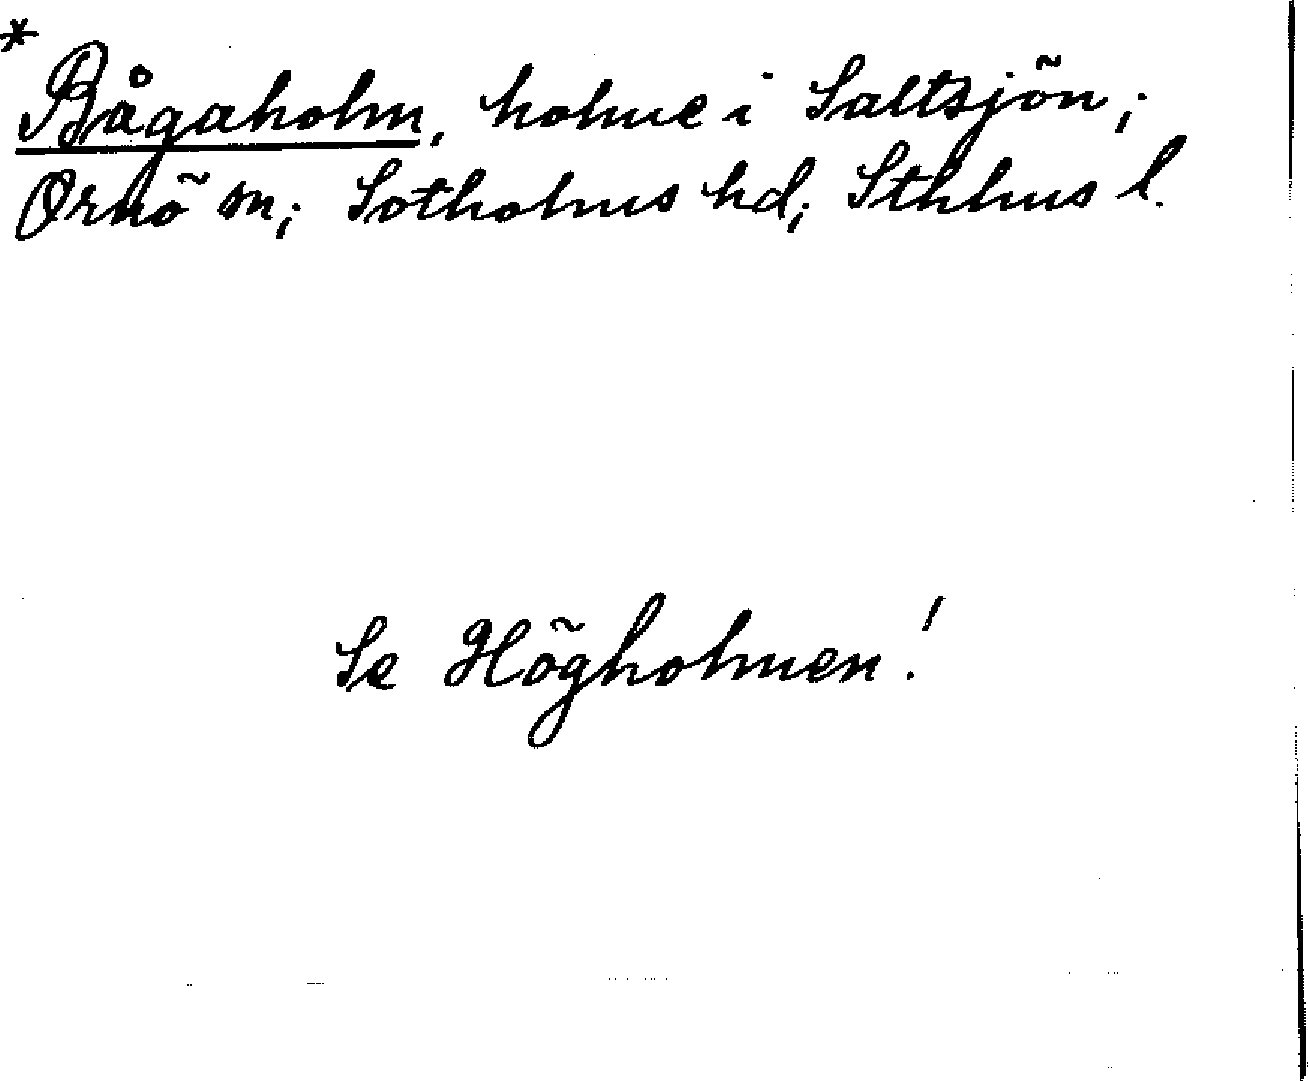 * Bågaholm, holme i Saltsjön;
Ornö sn; Sotholms hd; Sthlms l.
Se Högholmen!